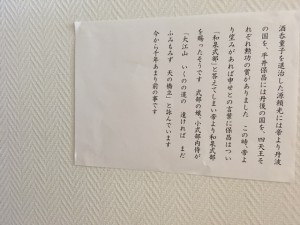 酒呑童子を退治した源頼光には帝より丹波
の国を、平井保昌には丹後の国を、四天王そ
れぞれ勲功の賞がありました この時、帝よ
り望みがあれば申せとの言葉に保昌はつい
「和泉式部」と答えてしまい帝より和泉式部
を賜ったそうです 式部の娘、小式部内侍が
「大江山 いくのの道の 遠ければ まだ
ふみもみず 天の橋立」と詠んでいます
今から千年あまり前の事です